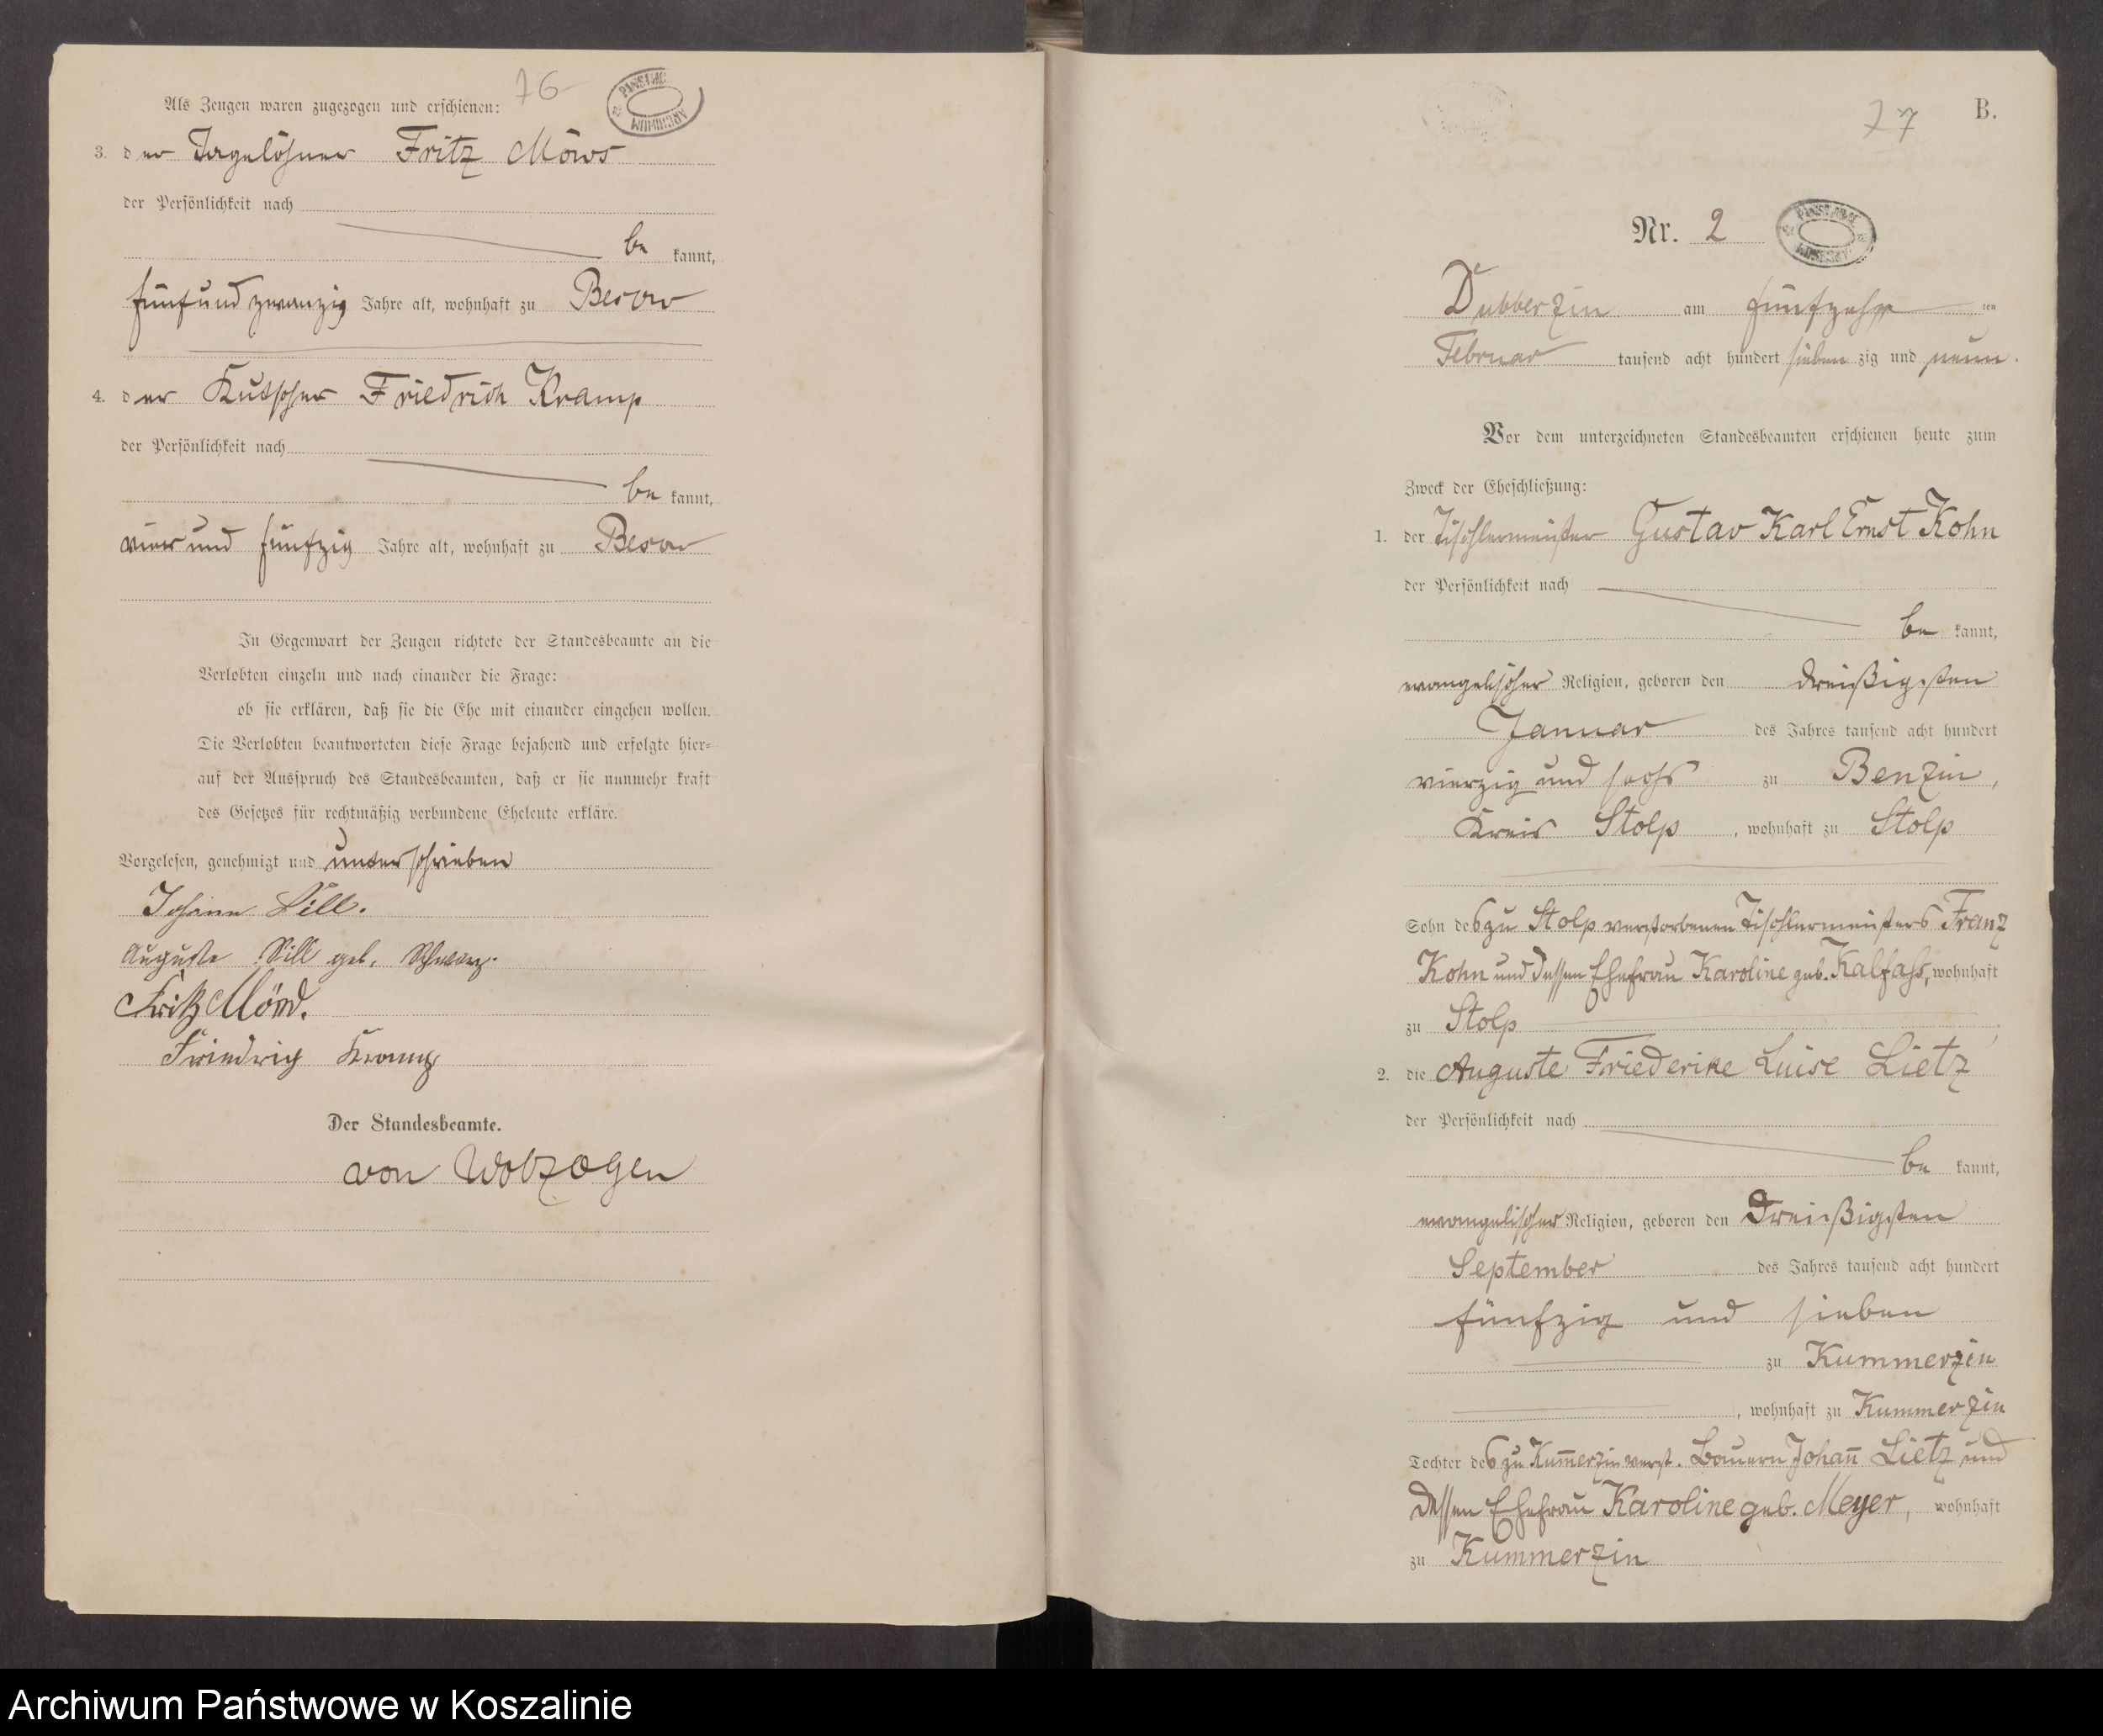 76
Als Zeugen waren zugezogen und erschienen:
3. der Tagelöhner Fritz Möws
der Persönlichkeit nach
be kannt,
fünfund zwanzig Jahre alt, wohnhaft zu Besow
4. der Kutscher Friedrich Kramp
der Persönlichkeit nach
be kannt,
vier und fünfzig Jahre alt, wohnhaft zu Besow
In Gegenwart der Zeugen richtete der Standesbeamte an die
Verlobten einzeln und nach einander die Frage:
ob sie erklären, daß sie die Ehe mit einander eingehen wollen.
Die Verlobten beantworteten diese Frage bejahend und erfolgte hier-
auf der Ausspruch des Standesbeamten, daß er sie nunmehr kraft
des Gesetzes für rechtmäßig verbundene Eheleute erkläre.
Vorgelesen, genehmigt und unterschrieben
Johann Sill.
Auguste Sill geb.
Fritz
Friedrig Kramp
Der Standesbeamte.
von Wolzogen
77
B.
Nr. 2
Dubberzin am fünfzehn ten
Februar tausend acht hundert sieben zig und neun.
Vor dem unterzeichneten Standesbeamten erschienen heute zum
Zweck der Eheschließung:
1. der Tischlermeister Gustav Karl Ernst Kohn
der Persönlichkeit nach
be kannt,
evangelischer Religion, geboren den dreißigsten
Januar des Jahres tausend acht hundert
vierzig und sechs zu Benzin,
Kreis Stolp, wohnhaft zu Stolp
Sohn des zu Stolp verstorbenen Tischlermeisters Franz
Kohn und dessen Ehefrau Karoline geb. Kalfahs, wohnhaft
zu Stolp
2. die Auguste Friederike Luise Lietz
der Persönlichkeit nach
be kannt,
evangelischer Religion, geboren den dreißigsten
September des Jahres tausend acht hundert
fünfzig und sieben
zu Kummerzin
, wohnhaft zu Kummerzin
Tochter des zu Kum̄erzin verst. Bauern Johan̄ Lietz und
dessen Ehefrau Karoline geb. Meyer, wohnhaft
zu Kummerzin
Archiwum Państwowe w Koszalinie